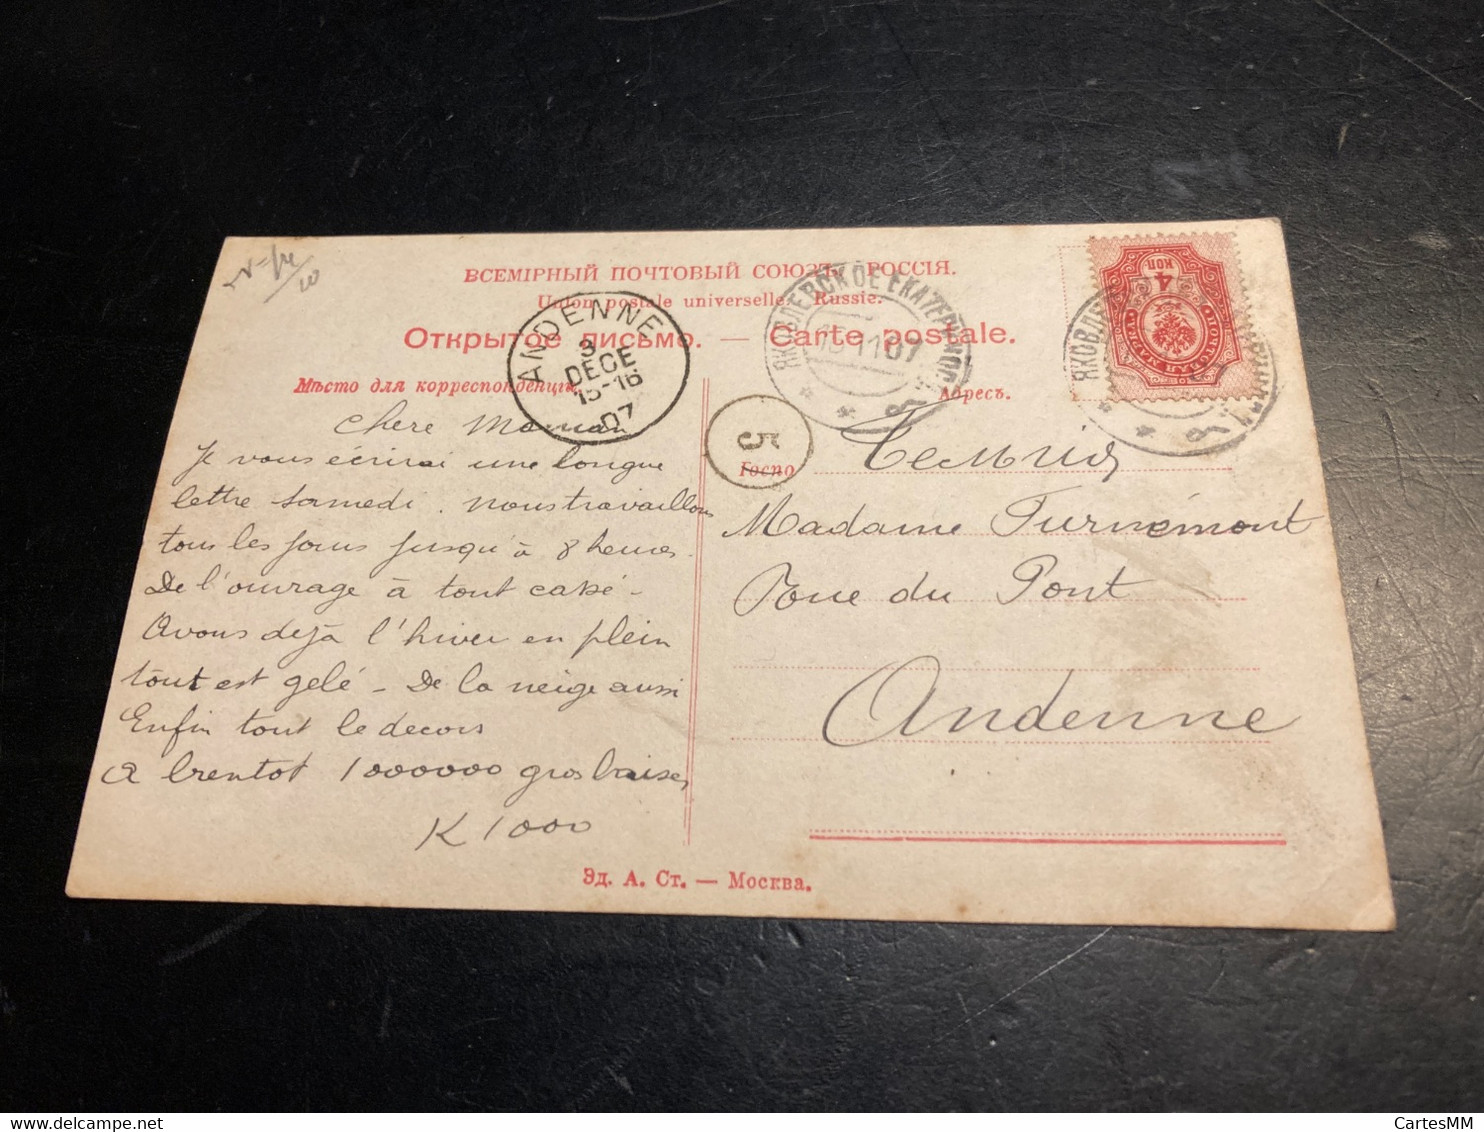 ВСЕМІРНЫЙ ПОЧТОВЫЙ СОЮЗЪ. РОССІЯ.
Union postale universelle. Russie.
Открытое письмо. — Carte postale.
Мѣсто для корреспонденціи.
Адресъ.
ANDENNE
3
DECE
15-16
07
ЯКОВЛЕВСКОЕ ЕКАТЕРИНОС
15 11 07
4
КОП
ПОЧТОВАЯ МАРКА
5
Госпо
Chère Maman
Je vous écrirai une longue
lettre samedi. Nous travaillons
tous les jours jusqu'à 8 heures.
De l'ouvrage à tout cassé -
Avons déjà l'hiver en plein
tout est gelé - De la neige aussi
Enfin tout le decors
A bientot 1000000 gros baisers
K 1000
Бельгия
Madame Turnémont
Rue du Pont
Andenne
Эд. А. Ст. — Москва.
CartesMM